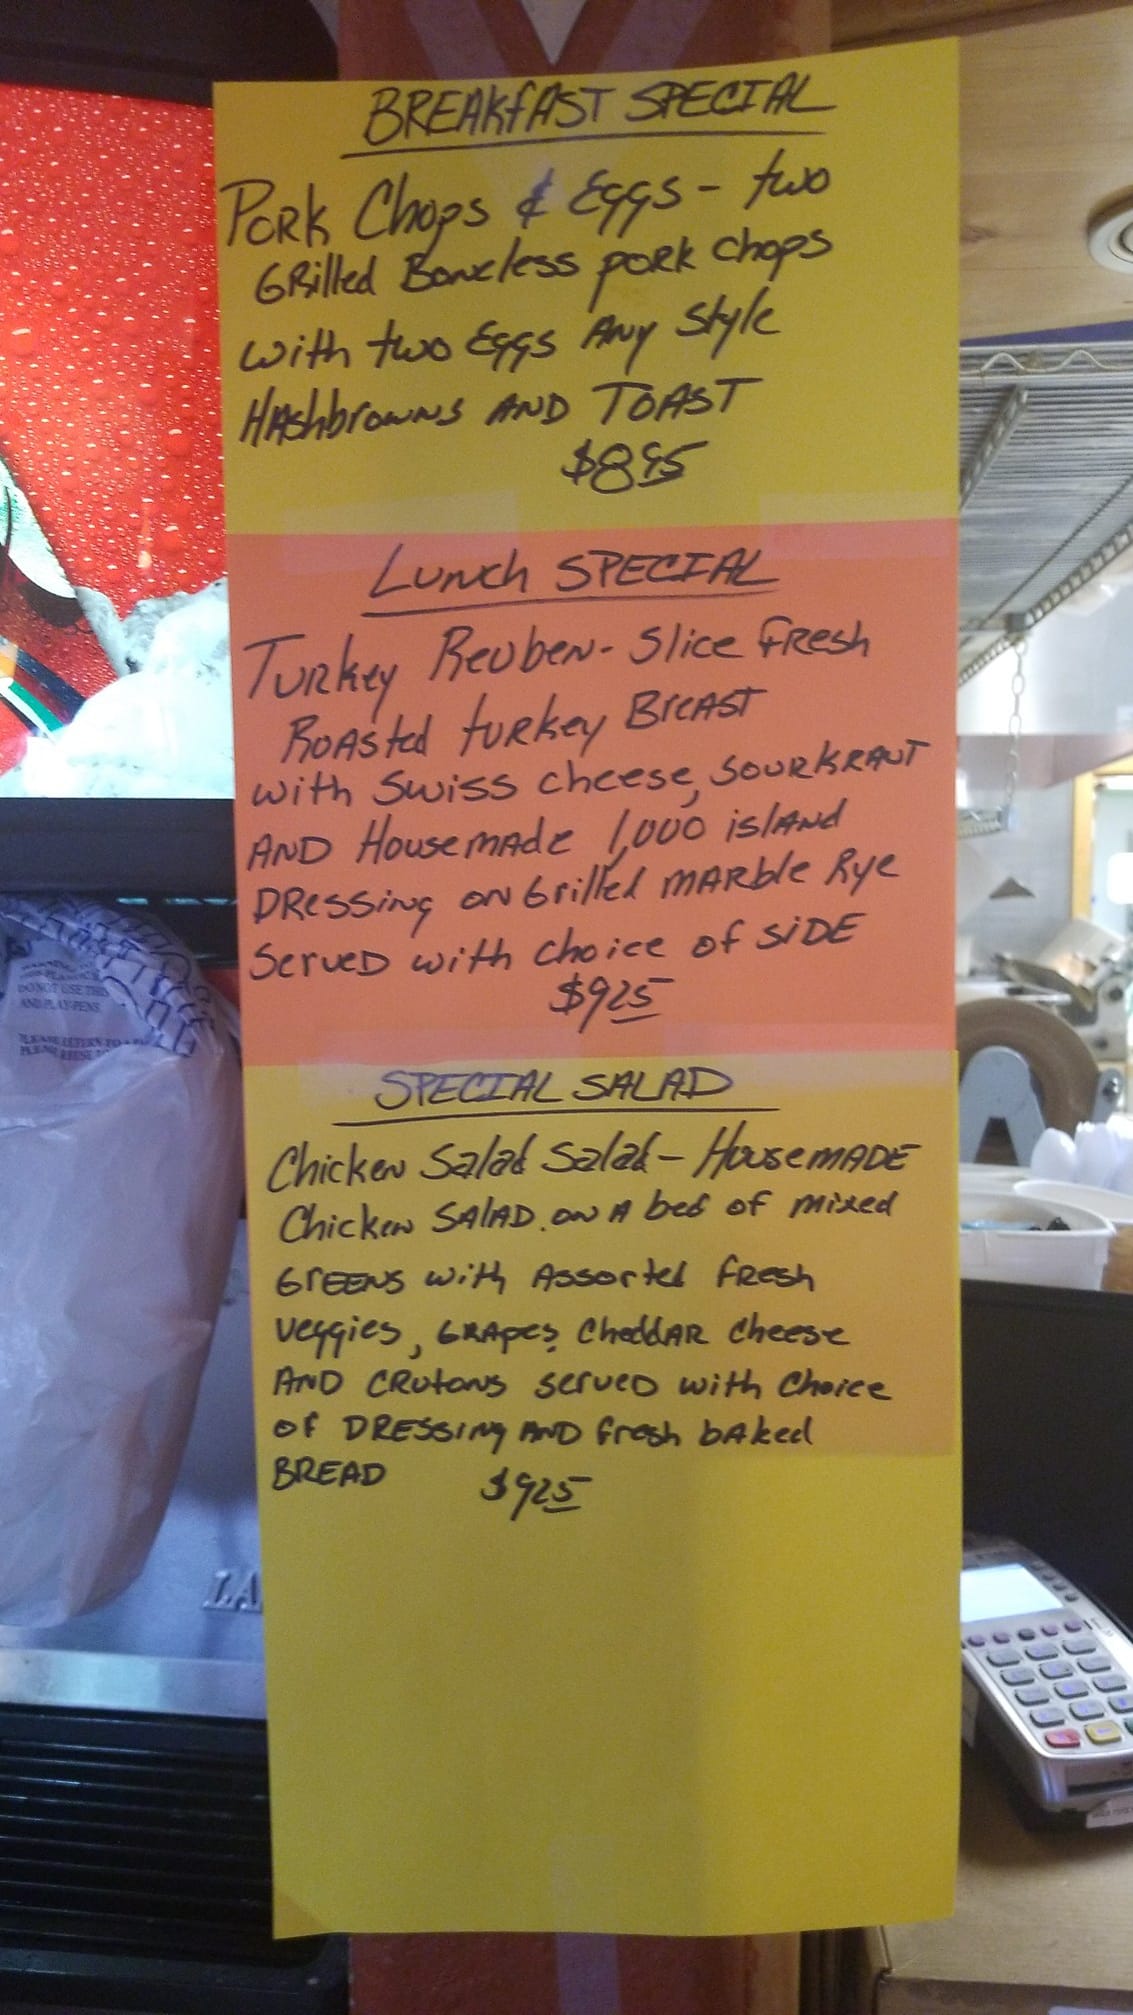 BREAKFAST SPECIAL
Pork Chops & Eggs - two
Grilled Boneless pork chops
with two Eggs Any Style
Hashbrowns AND TOAST
$8.95
Lunch SPECIAL
Turkey Reuben - Slice Fresh
Roasted turkey Breast
with Swiss cheese, SOURKRAUT
AND Housemade 1,000 island
DRessing on Grilled MARble Rye
Served with choice of SIDE
$9.25
SPECIAL SALAD
Chicken Salad Salad - HousemADE
Chicken SAlAD. on A bed of mixed
GrEENS with Assorted fresh
veggies, GRApes, CheddAR cheese
AND CRutons served with Choice
of DRESSING AND fresh baked
BREAD $9.25
DO NOT USE THIS
AND PLAY-PENS
LA